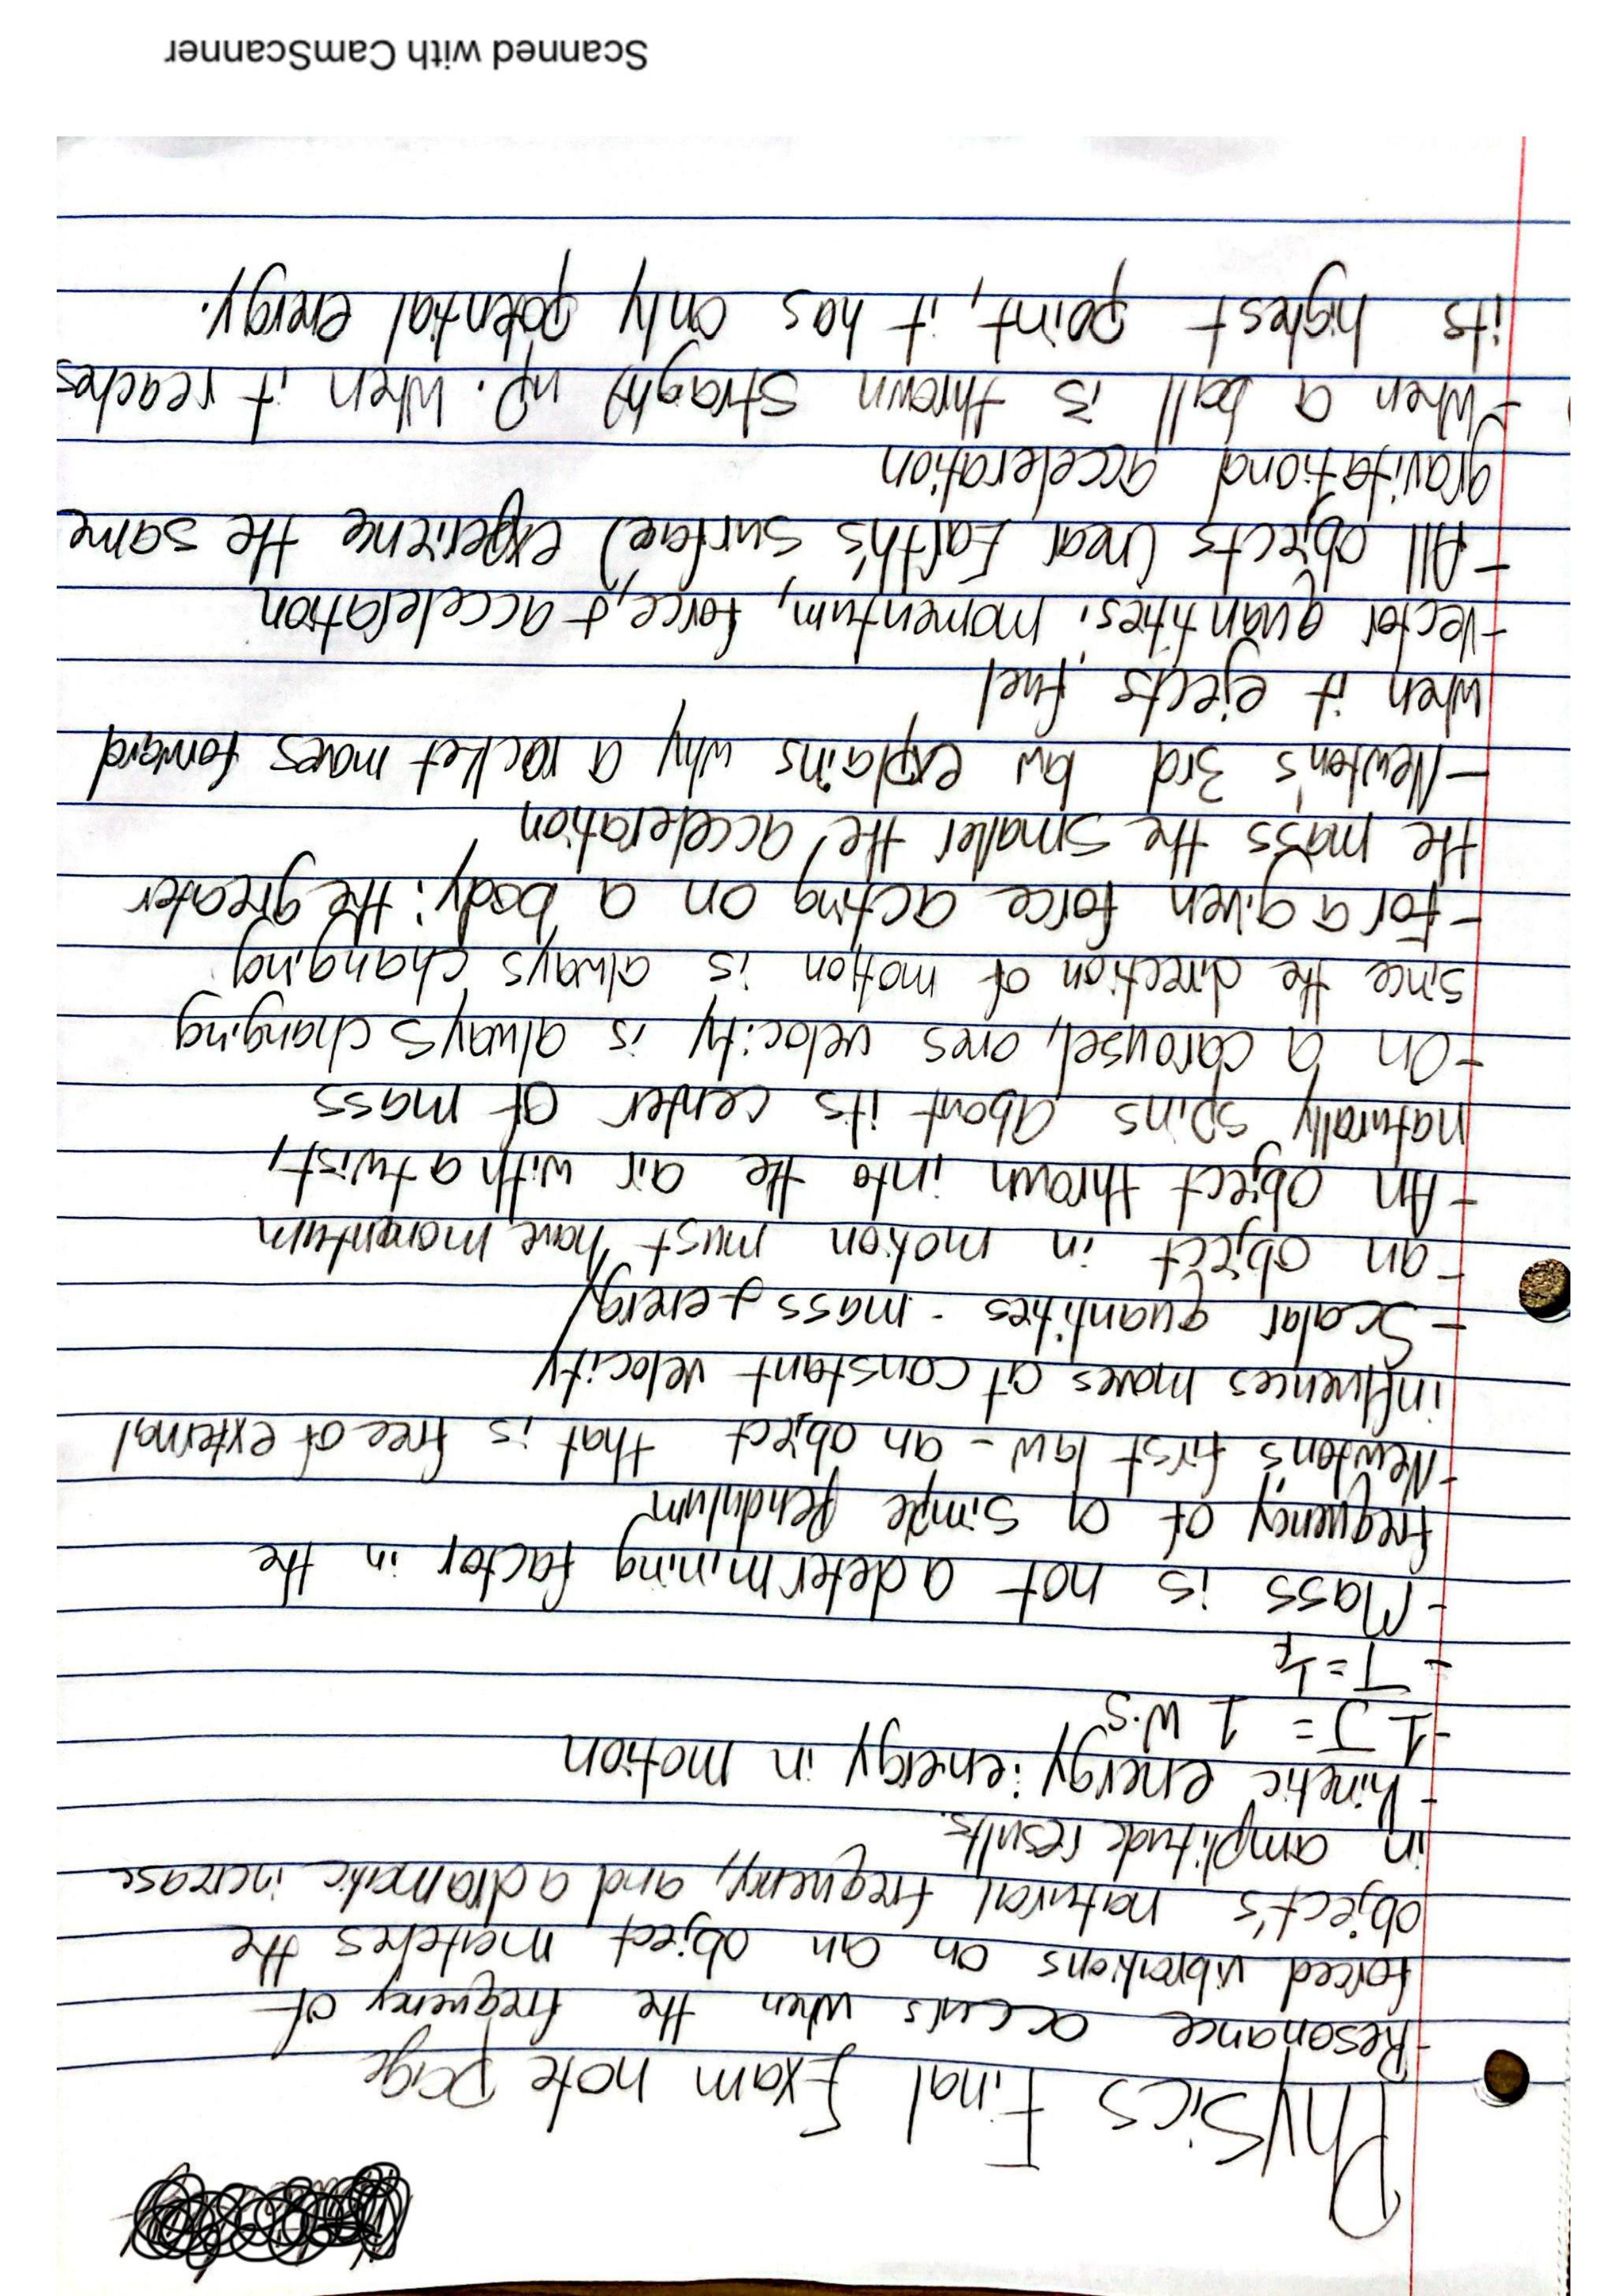 Physics Final Exam note page
-Resonance occurs when the frequency of
forced vibrations on an object matches the
object's natural frequency, and a dramatic increase
in amplitude results.
- kinetic energy: energy in motion
-1 J = 1 W·s
- T = 1/f
- Mass is not a determining factor in the
frequency of a simple pendulum
-Newton's first law - an object that is free of external
influences moves at constant velocity
- Scalar quantities - mass & energy
- an object in motion must have momentum
- An object thrown into the air with a twist,
naturally spins about its center of mass
- On a carousel, ones velocity is always changing
since the direction of motion is always changing
- For a given force acting on a body: the greater
the mass the smaller the acceleration
- Newton's 3rd law explains why a rocket moves forward
when it ejects fuel
-Vector quantities: momentum, force, & acceleration
- All objects (near Earth's surface) experience the same
gravitational acceleration
- When a ball is thrown straight up. When it reaches
its highest point, it has only potential energy.
Scanned with CamScanner